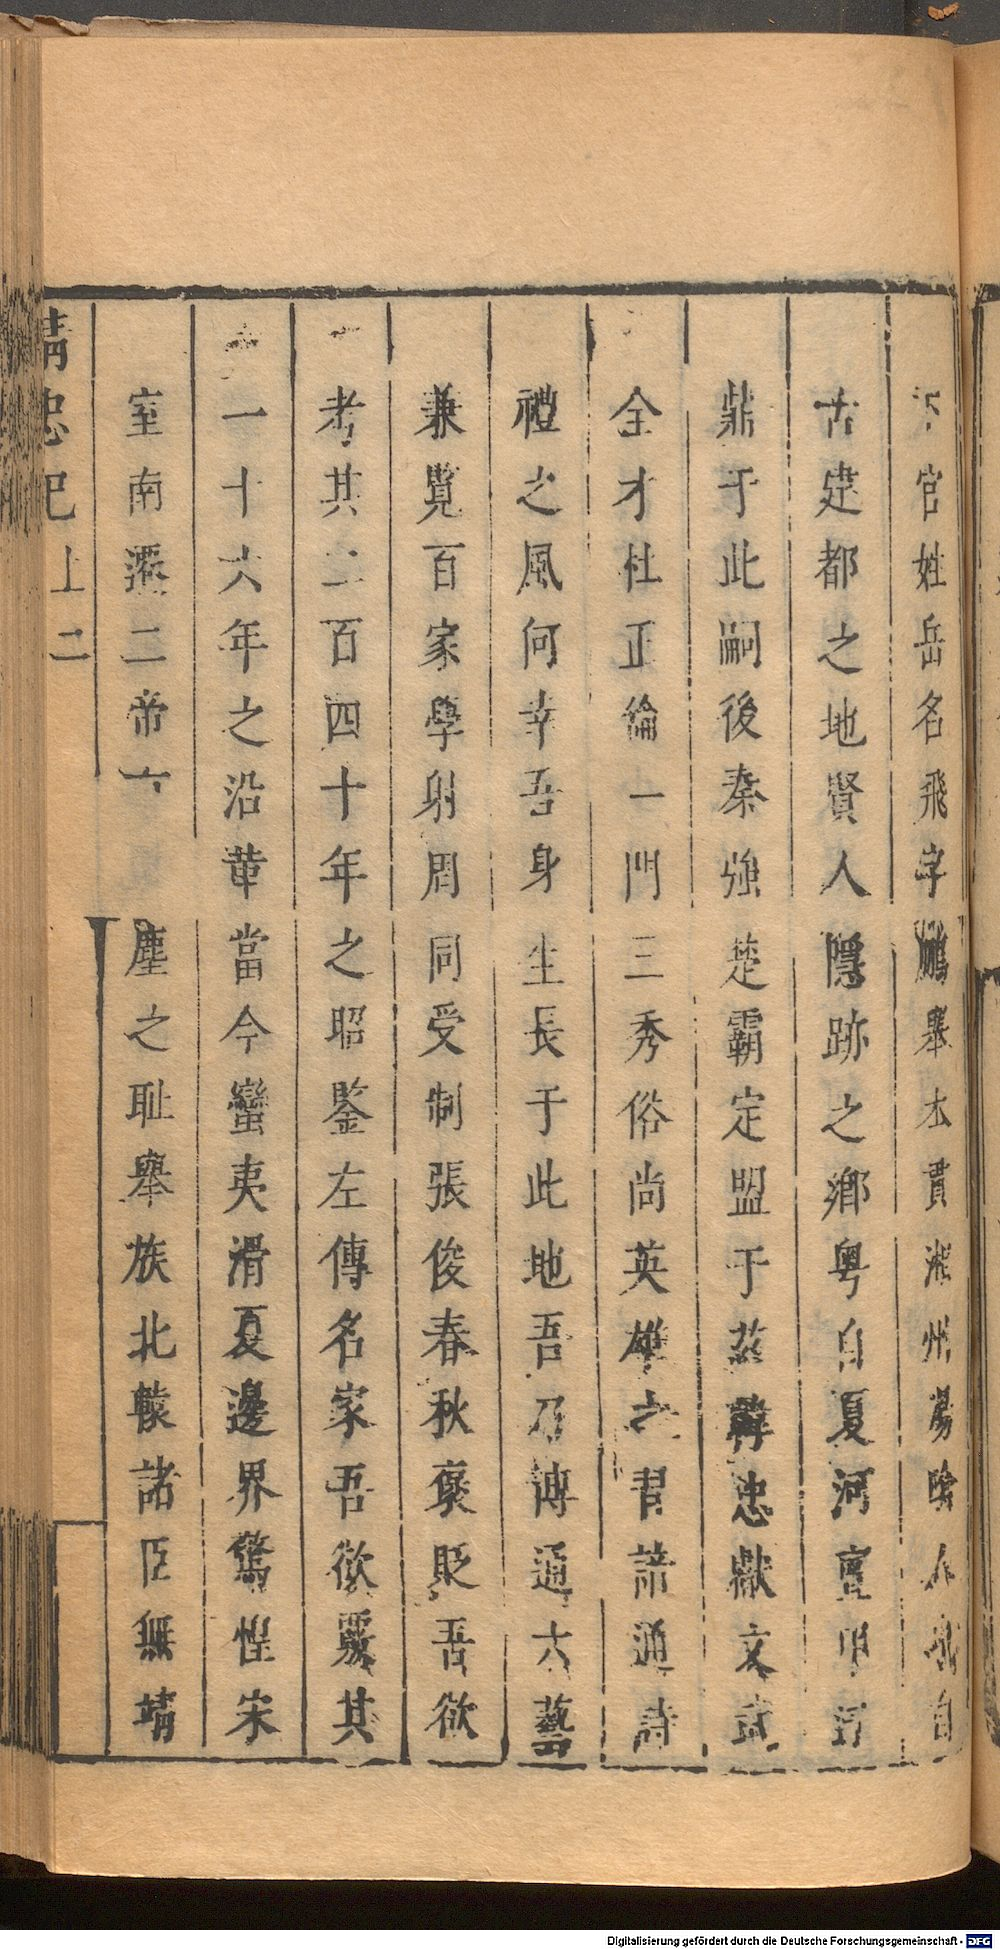 下官姓岳名飛字鵬舉本貫湘州湯陰人氏自
古建都之地賢人隱跡之鄉粤自夏河亶甲
鼎于此嗣後秦強楚霸定盟于茲韓忠獻文武
全才杜正倫一門三秀俗尚英雄之習諳通詩
禮之風何幸吾身生長于此地吾乃博通六藝
兼覽百家學射周同受制張俊春秋褒貶吾欲
考其二百四十年之昭鑒左傳名家吾欲覈其
一十六年之沿革當今蠻夷滑夏邊界驚惶宋
室南遷二帝六塵之耻舉族北轅諸臣無靖
精忠記上二
Digitalisierung gefördert durch die Deutsche Forschungsgemeinschaft - DFG